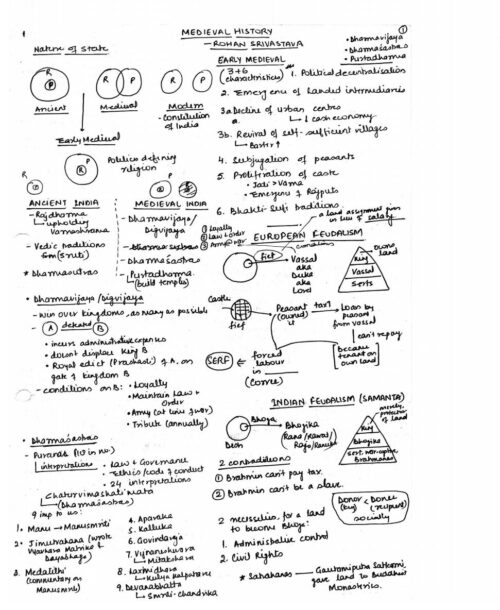 MEDIEVAL HISTORY
- ROHAN SRIVASTAVA
1
Nature of State
R
P
Ancient
R P
Medieval
R P
Modern
- Constitution of India
Early Medieval
P
R
Politics defining religion
R
P
ANCIENT INDIA
- Rajdharma
↳ upholding Varnashrama
- Vedic traditions
Sm(Sruti)
* Dharmasutras
MEDIEVAL INDIA
- Dharmavijaya/
Digvijaya
① Loyalty
② Law & order
③ Army
- Dharmasastras
- Purtadharma
(build temples)
• Dharmavijaya/Digvijaya
- win over kingdoms, as many as possible
- A defeated B
• incurs administrative expenses
• doesnt displace King B
• Royal edict (Prashasti) of A, on
gate of kingdom B
- conditions on B: • Loyalty
• Maintain Law &
Order
• Army (at time of war)
• Tribute (annually)
• Dharmasastras
- Puranas (18 in no.)
interpretations
• Law & Governance
• ethics/code of conduct
• 24 interpretations
Chaturvimashatimata
↳ (Dharmasastras)
9 imp to us:
1. Manu → Manusmriti
2. Jimutvahana (wrote
Dayabhaga)
3. Medatithi
(commentary on
Manusmriti)
4. Aparaka
5. Kalluka
6. Govindraja
7. Vijnaneshwara
↳ Mitakshara
8. Laxmidhara
↳ Kritya Kalpataru
9. Devanabhatta
↳ Smriti-chandrika
• Dharmavijaya
• Dharmasastras
• Purtadharma
EARLY MEDIEVAL
(3+6
characteristics)
1. Political decentralisation
2. Emergence of landed intermediaries
3a. Decline of urban centres
↳ ↓ cash economy
3b. Revival of self-sufficient villages
↳ Barter ↑
4. Subjugation of peasants
5. Proliferation of caste
• Jati > Varna
• Emergence of Rajputs
6. Bhakti-Sufi traditions
a land assignment given
in lieu of salary
EUROPEAN FEUDALISM
fief
Vassal
aka
Duke
aka
Lord
King
Vassal
Serfs
owns
land
Castle
fief
Peasant
(owned)
it
tax↑
Loan by
peasant
from vassal
can't repay
became
tenant on
own land
forced
labour
in
(Corvee)
SERF
INDIAN FEUDALISM (SAMANTA)
Bhoga
Bhojika
merely
protector
of land
King
Bhojika
Brahmanas
2 contradictions
① Brahmin can't pay tax.
② Brahmin can't be a slave.
Donor < Donee
(King) (recipient)
socially
2 necessities, for a land
to become Bhoga:
1. Administrative control
2. Civil Rights
* Satvahanas — Gautamiputra Satkarni
gave land to Buddhist
Monasteries.